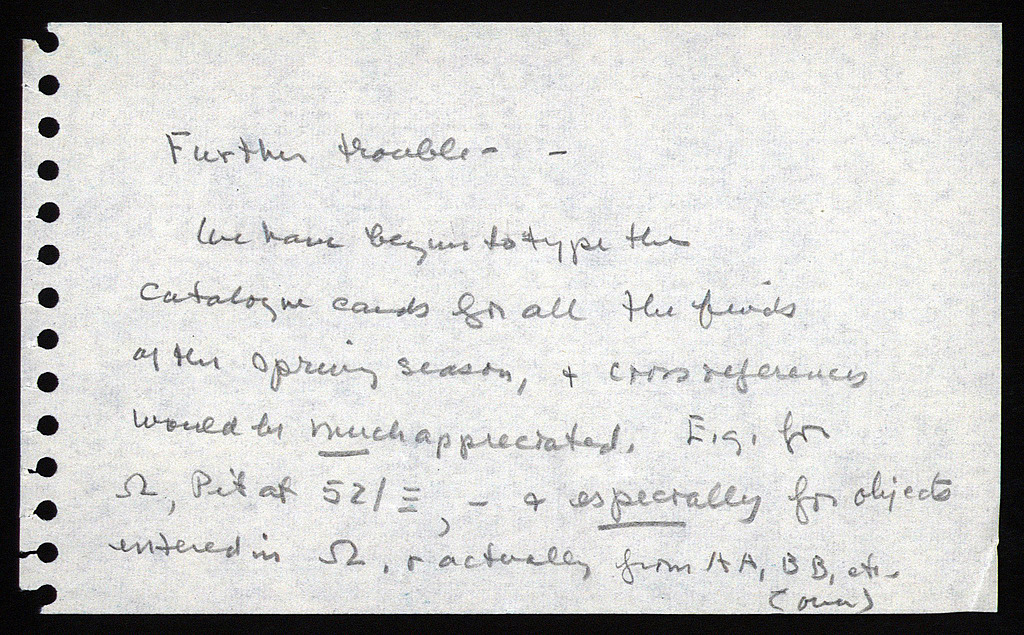 Further trouble - -
We have begun to type the
catalogue cards for all the finds
of the spring season, + cross references
would be much appreciated. E.g. for
Ω, Pit at 52/Ξ, - + especially for objects
entered in Ω, + actually from AA, BB, etc.
(over)